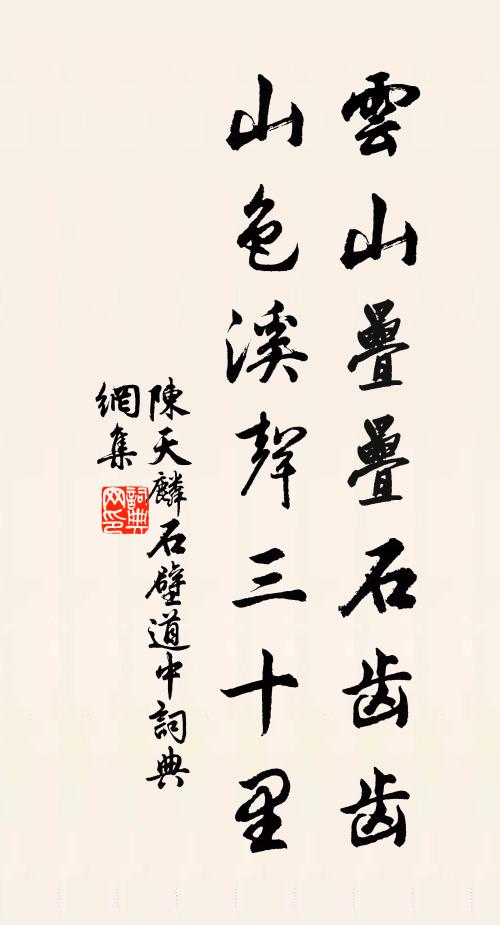 雲山疊疊石齿齿
山色溪聲三十里
陳天麟石壁道中詞典
網集
詞典
网印